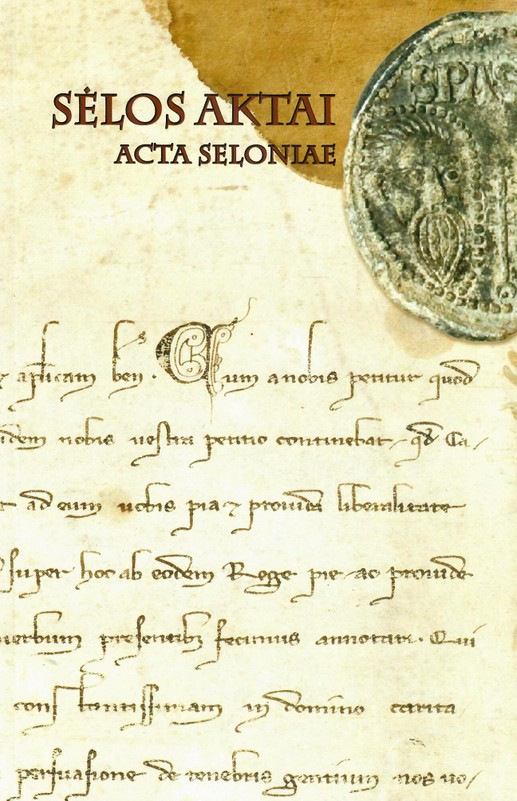 SĖLOS AKTAI
ACTA SELONIAE
SPAS
aplicam ben. Cum a nobis petitur quod
idem nobis vestra petitio continebat, qd Ca/
ad eum vobis pia ⁊ provida liberalitate
super hoc ab eodem Rege pie ac provide
verbum presentibz fecimus annotari. Qui
in domino carita
persuasione de tenebris gentium nos vo/